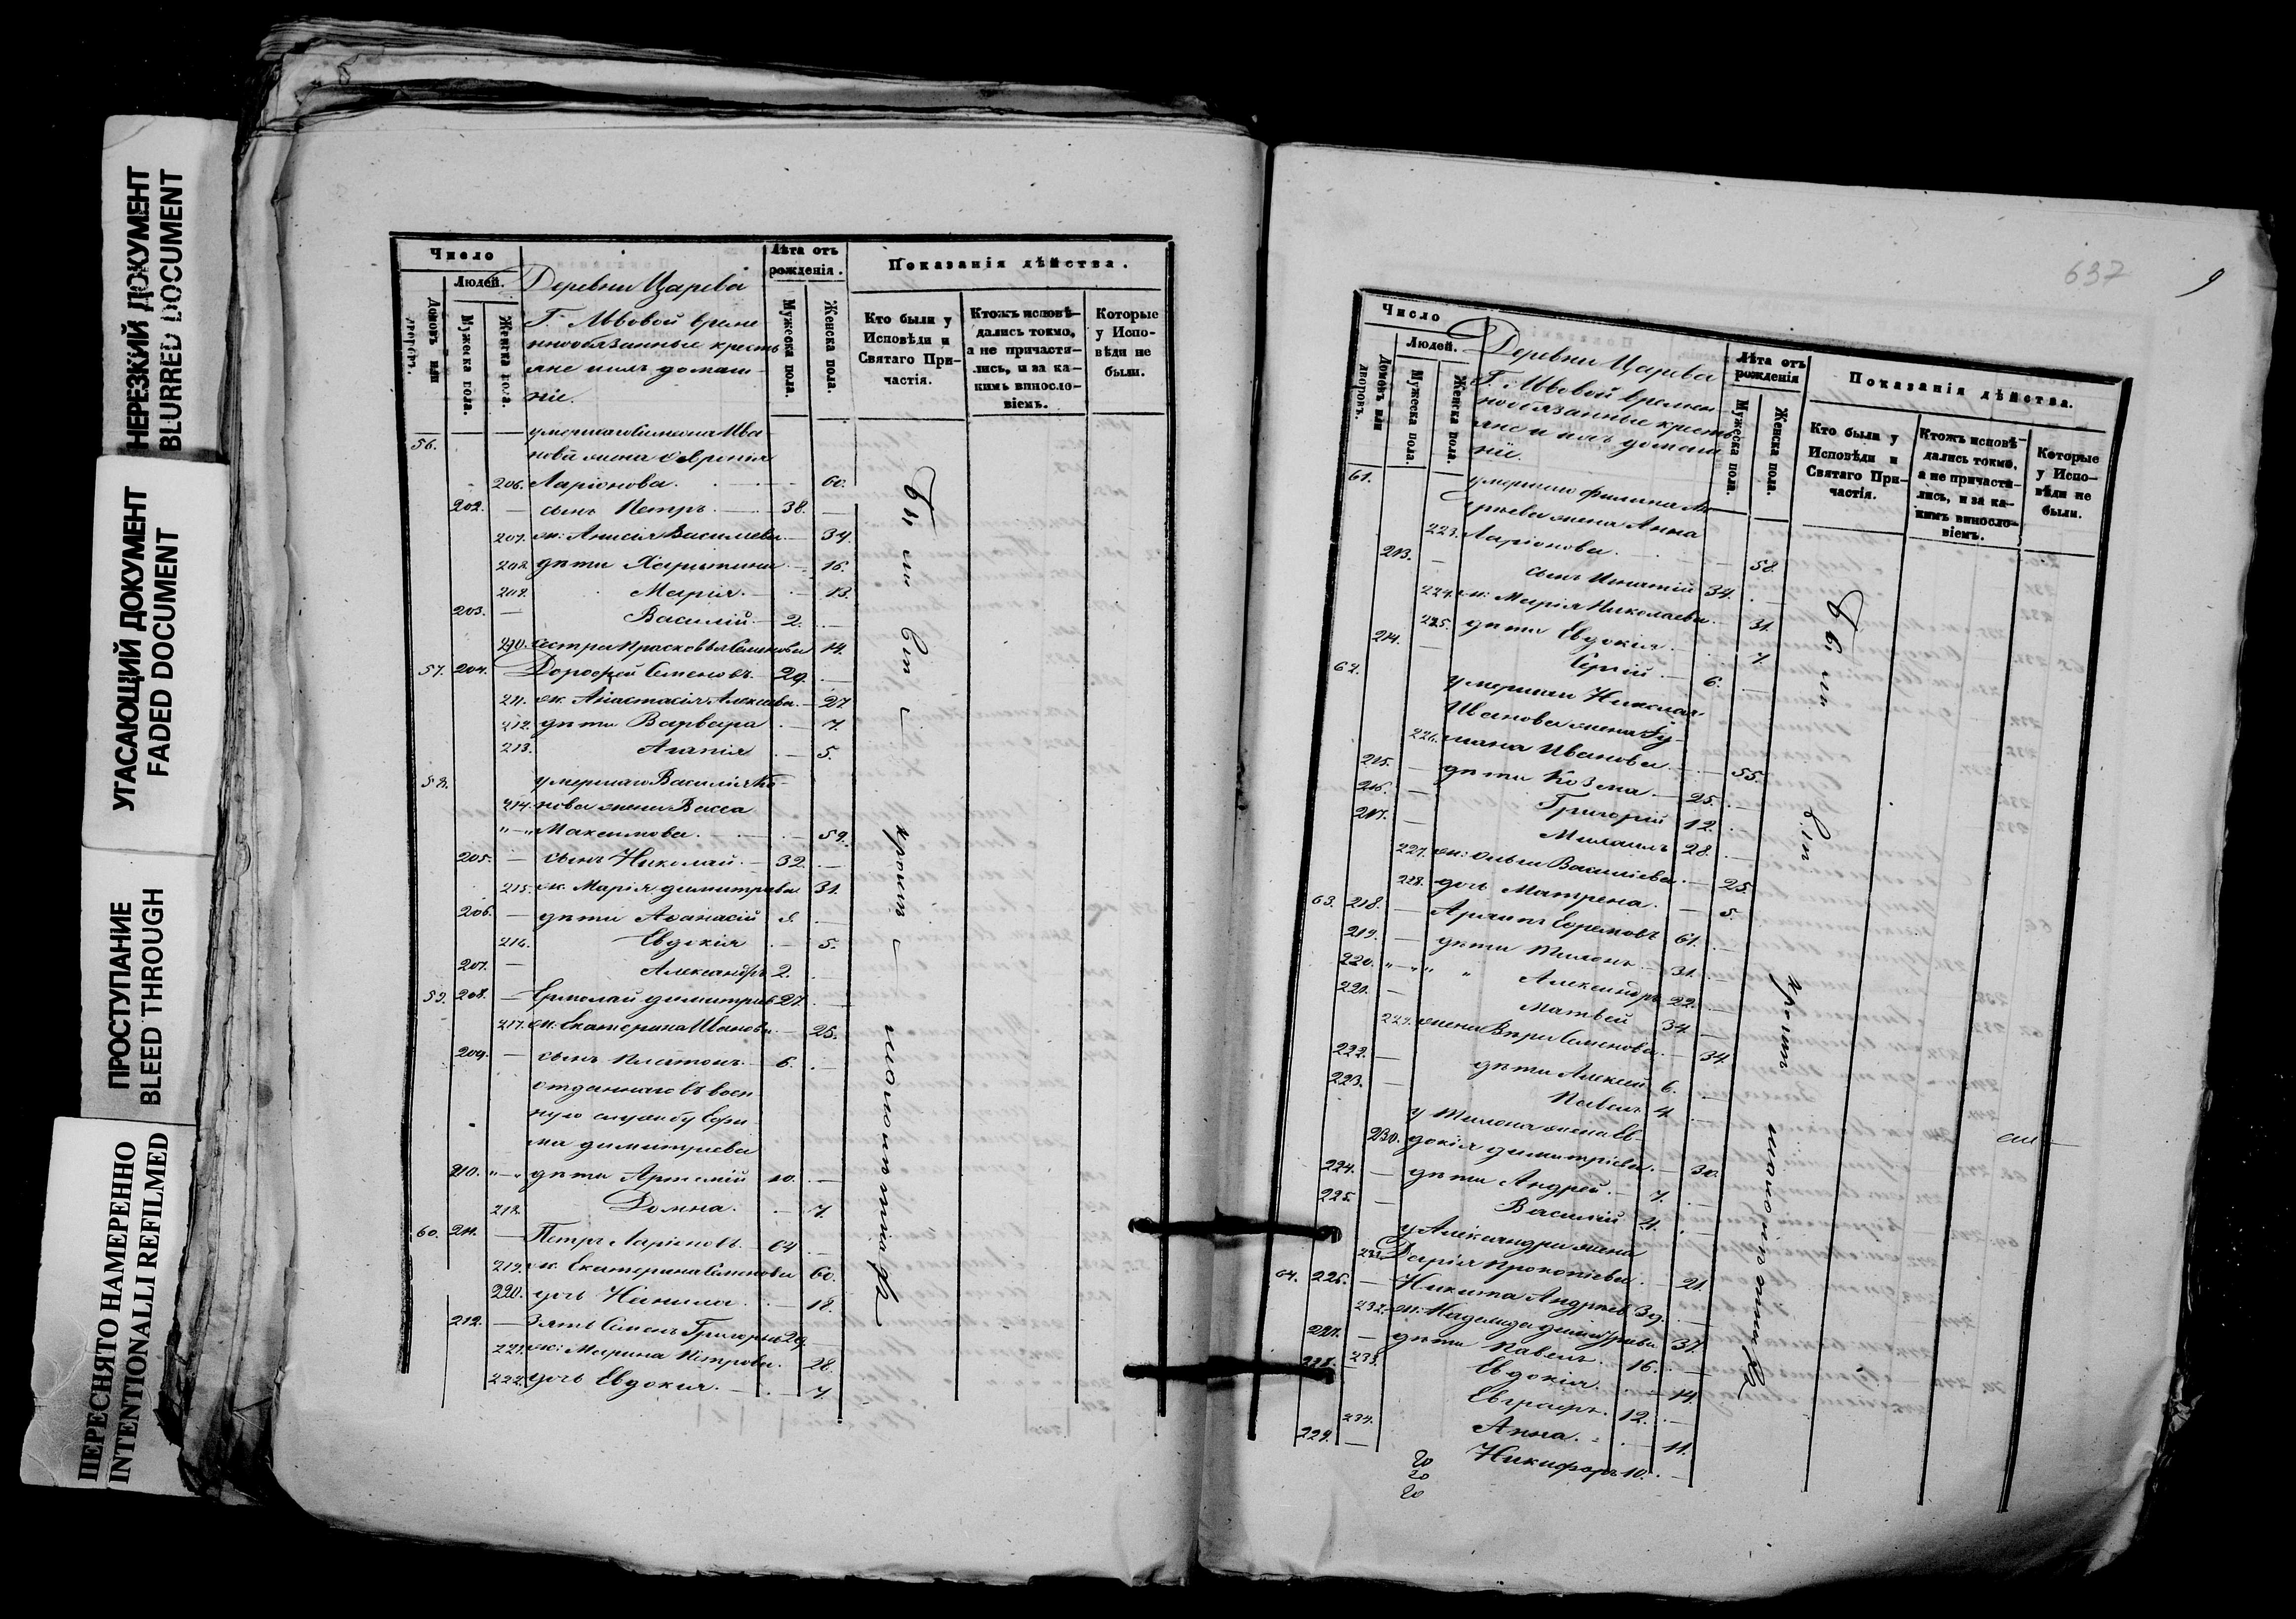 НЕРЕЗКИЙ ДОКУМЕНТ
BLURRED DOCUMENT
УГАСАЮЩИЙ ДОКУМЕНТ
FADED DOCUMENT
ПРОСТУПАНИЕ
BLEED THROUGH
ПЕРЕСНЯТО НАМЕРЕННО
INTENTIONALLI REFILMED
Число
Людей.
Домовъ или дворовъ.
Мужеска пола.
Женска пола.
Деревни Царева
Г. Львовой времен
нообязанные кресть
яне и ихъ домаш-
ніе.
Лѣта отъ рожденія.
Мужеска пола.
Женска пола.
Показанія дѣйства.
Кто были у Исповѣди и Святаго При-частія.
Ктожъ исповѣ-дались токмо, а не причасти-лись, и за ка-кимъ винословіемъ.
Которые у Испо-вѣди не были.
56. умершаго Симеона Ива
нова жена Февронія
206. Ларіонова. 60.
202. — сынъ Петръ. 38.
207. ж: Анисія Васильева 34.
208. дѣти Харитина 16.
209. Марія. 13.
203. — Василій. 2.
210. сестра Прасковья Семенова 14.
57. 204. Дорофей Семеновъ. 29.
211. ж. Анастасія Алексѣева. 27
212. дѣти Варвара 7.
213. Агапія 5.
58. умершаго Василія Ко-
214. нова жена Васса
Максимова. 59.
205. — сынъ Николай. 32.
215. ж. Марія Димитріева 31.
206. — дѣти Аѳанасій 8.
216. Евдокія 5.
207. — Александръ 2.
59. 208. — Ермолай Димитріевъ 27.
217. ж. Екатерина Иванова. 25.
209. — сынъ Платонъ. 6.
отданнаго въ воен
ную службу Ефи-
ма Димитріева
210. дѣти Артемій 10.
218. Домна. 7.
60. 211. — Петръ Ларіоновъ. 64
219. ж. Екатерина Семенова 60.
220. дочь 18.
212. — Зять Семенъ Григорьевъ 29.
221. ж: Марина Петрова. 28.
222. дочь Евдокія. 7.
Были всѣ кромѣ малолѣтнихъ
637
9
Число
Людей.
Домовъ или дворовъ.
Мужеска пола.
Женска пола.
Деревни Царева
Г. Львовой времен
нообязанные кресть
яне и ихъ домаш
ніе.
Лѣта отъ рожденія
Мужеска пола.
Женска пола.
Показанія дѣйства.
Кто были у Исповѣди и Святаго При-частія.
Ктожъ исповѣ-дались токмо, а не причасти-лись, и за ка-кимъ винословіемъ.
Которые у Испо-вѣди не были.
61. умершаго Филиппа
жена Анна
223. Ларіонова. 58.
213. — сынъ Игнатій 34.
224. ж: Марія Николаева. 31.
225. дѣти Евдокія. 7.
214. — Сергій. 6.
62. умершаго Николая
Иванова жена Іу-
226. ліана Иванова. 55.
215. — дѣти Козма. 25.
216. — Григорій 12.
217. — Михаилъ 28.
227. ж: Ольга Василіева. 25.
228. дочь Матрена. 5.
63. 218. — Архипъ Ефремовъ 61.
219. — дѣти Филонъ. 31.
220. Александръ 22.
221. — Матвей 34.
229. жена Вѣра Семенова. 34.
222. — дѣти Алексѣй 6.
223. — Павелъ 4.
у Филона жена Ев-
230. докія Димитріева. 30.
224. — дѣти Андрей. 7.
225. — Василій 4.
у Александра жена
231. Дарія Прокопіева. 21.
64. 226. — Никита Андреевъ 39.
232. ж. Надежда Димитріева 37.
227. — дѣти Павелъ. 16.
233. Евдокія. 14.
228. Евграфъ. 12.
234. Анна. 11.
229. — Никифоръ 10.
Были всѣ кромѣ малолѣтнихъ